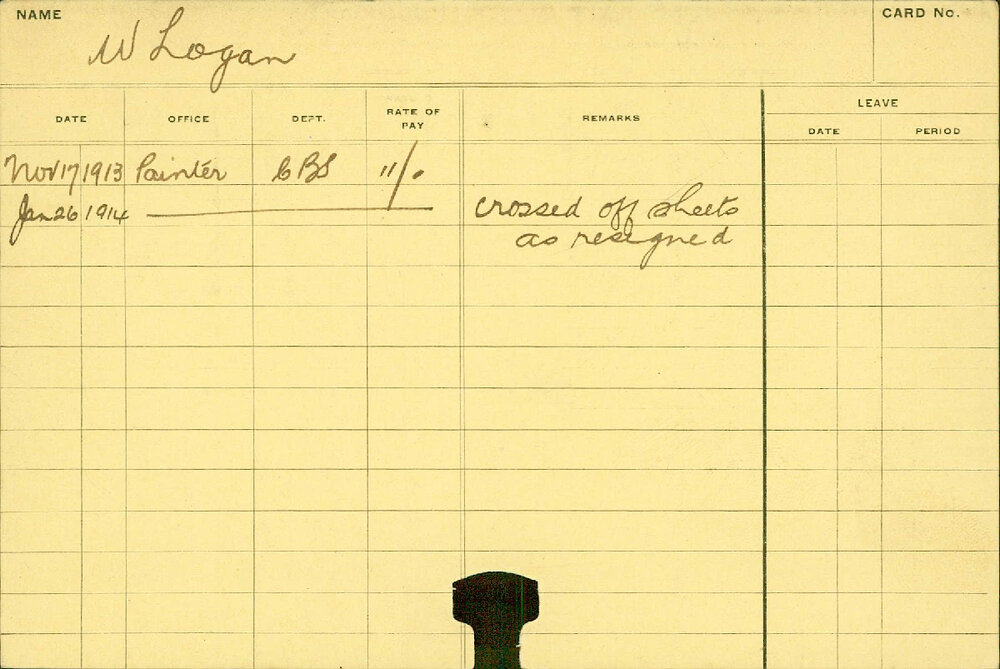 NAME
W Logan
CARD No.
DATE OFFICE DEPT. RATE OF PAY REMARKS LEAVE
DATE PERIOD
Nov 17 1913 Painter CBS 11/.
Jan 26 1914 crossed off sheets
as resigned